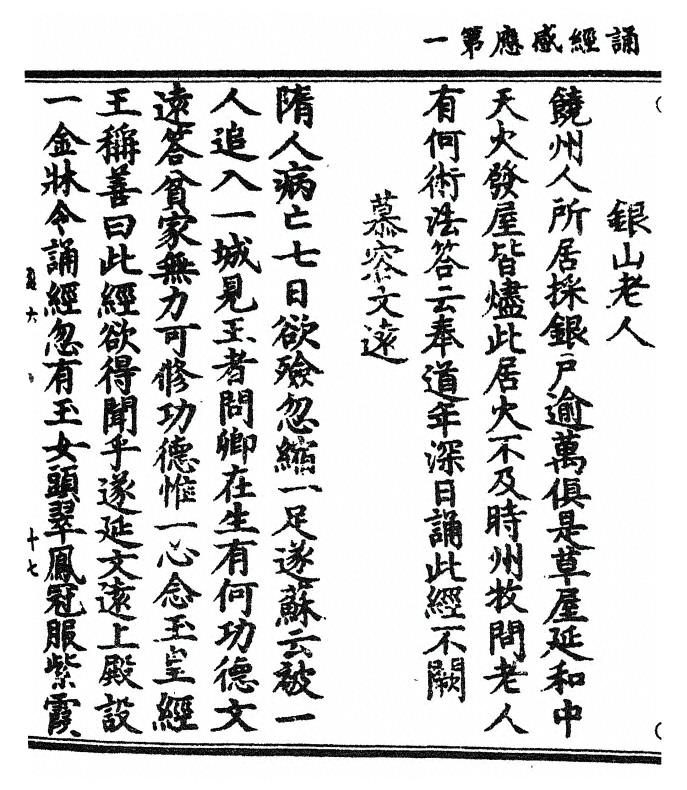 誦經感應第一
銀山老人
饒州人所居採銀戶逾萬俱是草屋延和中
天火發屋皆燼此居火不及時州牧問老人
有何術法答云奉道年深日誦此經不闕
慕容文遠
隋人病亡七日欲殮忽縮一足遂蘇云被一
人追入一城見王者問卿在生有何功德文
遠答貧家無力可修功德惟一心念玉皇經
王稱善曰此經欲得聞乎遂延文遠上殿設
一金牀令誦經忽有玉女頭翠鳳冠服紫霞
十七